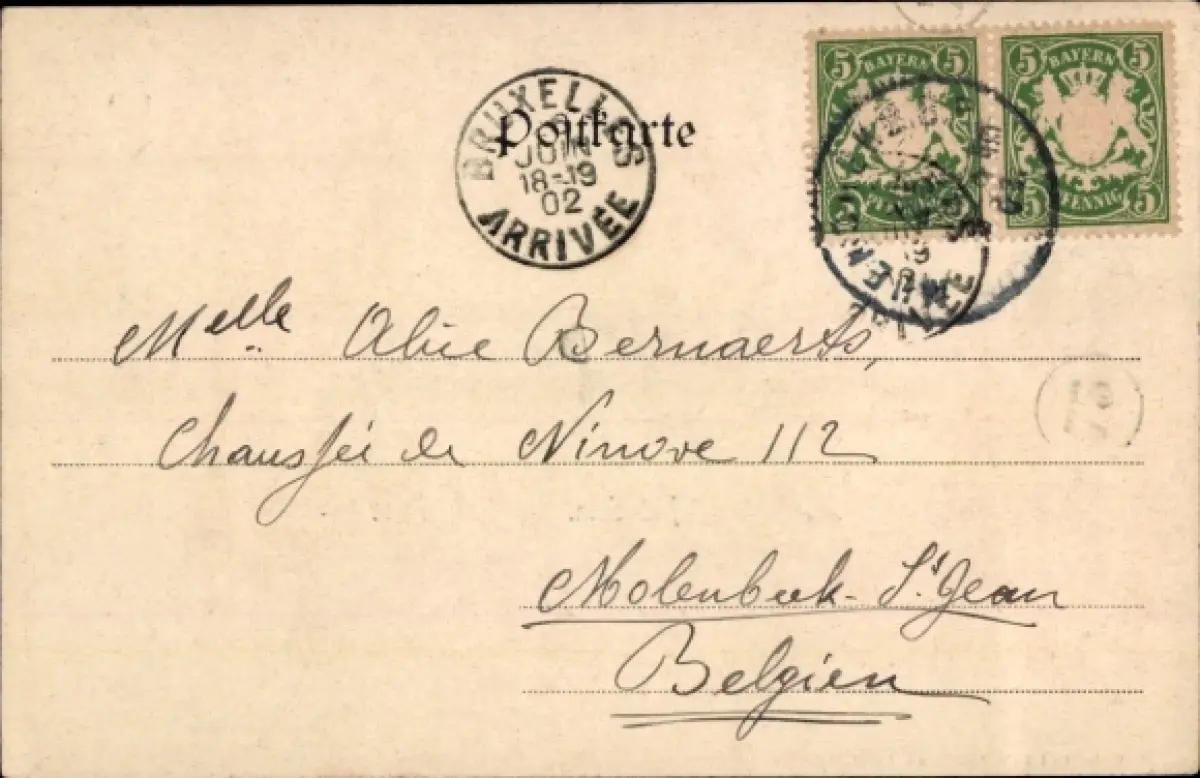 5 BAYERN 5
5 PFENNIG 5
5 BAYERN 5
5 PFENNIG 5
BRUXELLES
JUIN
18-19
02
ARRIVÉE
Postkarte
Melle Alice Bernaerts,
Chaussée de Ninove 112
Molenbeek-St Jean
Belgien